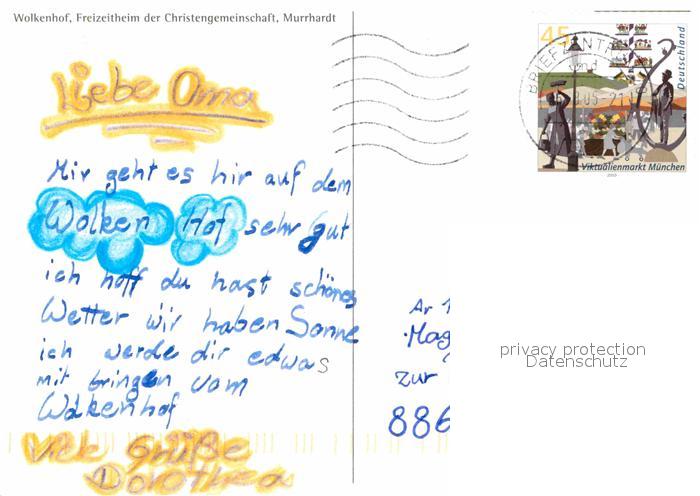 Wolkenhof, Freizeitheim der Christengemeinschaft, Murrhardt
Liebe Oma
Mir geht es hir auf dem
Wolken Hof sehr gut
ich hoff du hast schönes
Wetter wir haben Sonne
ich werde dir edwas
mit bringen vom
Wolkenhof
Viele Grüße
Dorothea
45
Deutschland
BRIEFZENTRUM
Viktualienmarkt München
Ar 1
Mag
zur
886
privacy protection
Datenschutz